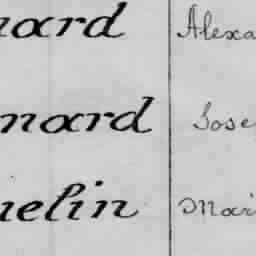 nard Alexa
nard Jose
uelin Mari